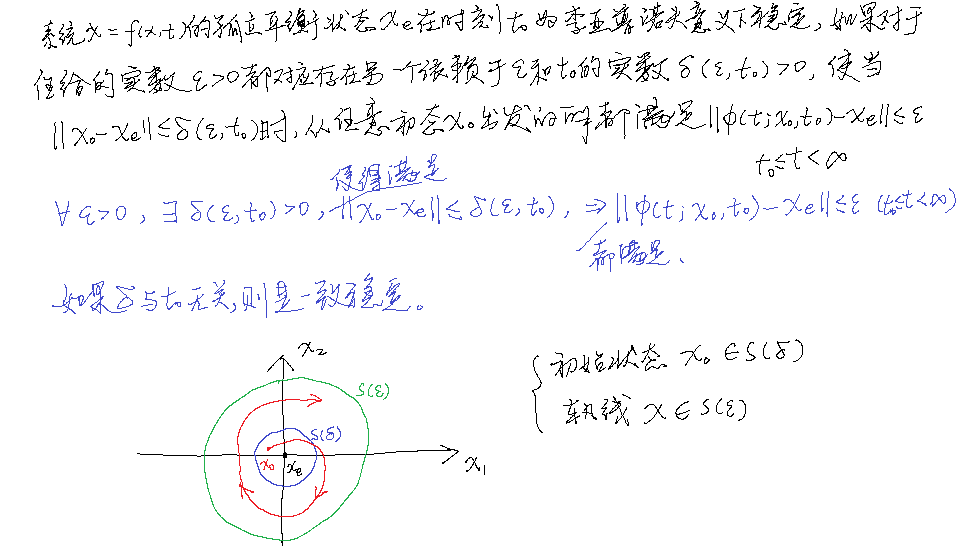 系统x=f(x,t)的孤立平衡状态xe在时刻t₀为李亚普诺夫意义下稳定,如果对于
任给的实数ε>0都对应存在另一个依赖于ε和t₀的实数δ(ε,t₀)>0,使当
||x₀-xe||≤δ(ε,t₀)时,从任意初态x₀出发的解都满足||ϕ(t;x₀,t₀)-xe||≤ε
t₀≤t<∞
使得满足
∀ε>0,∃δ(ε,t₀)>0,||x₀-xe||≤δ(ε,t₀),⇒||ϕ(t;x₀,t₀)-xe||≤ε (t₀≤t<∞)
都满足、
如果δ与t₀无关,则是一致稳定。
x₂
S(ε)
S(δ)
x₀
xe
x₁
初始状态 x₀∈S(δ)
轨线 x∈S(ε)